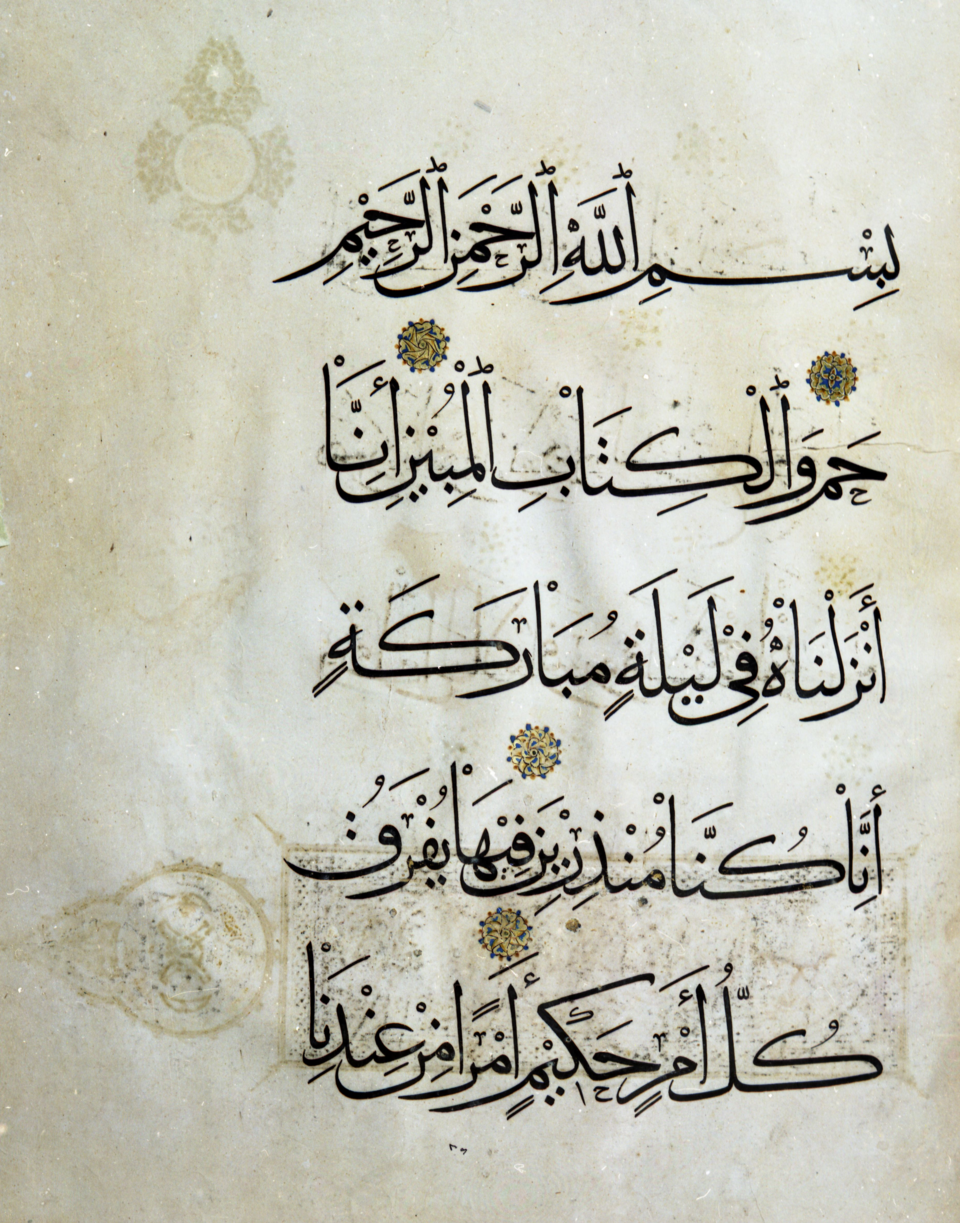 بِسْمِ ٱللَّهِ ٱلرَّحْمَٰنِ ٱلرَّحِيمِ
حَم وَٱلْكِتَابِ ٱلْمُبِيْنِ إِنَّا
أَنْزَلْنَاهُ فِيْ لَيْلَةٍ مُبَارَكَةٍ
إِنَّا كُنَّا مُنْذِرِيْنَ فِيْهَا يُفْرَقُ
كُلُّ أَمْرٍ حَكِيْمٍ أَمْرًا مِنْ عِنْدِنَا